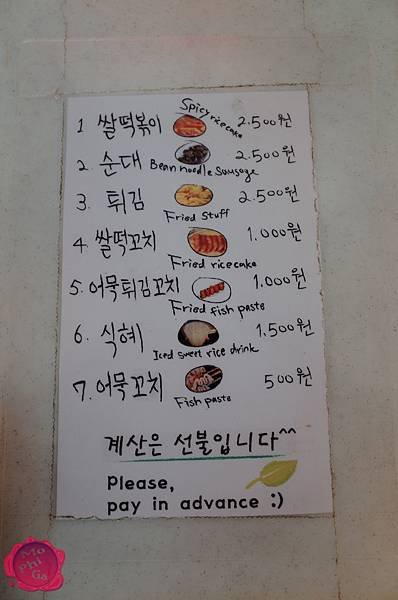 1 쌀떡볶이 Spicy rice cake 2.500원
2. 순대 Bean noodle Sausage 2.500원
3. 튀김 Fried Stuff 2.500원
4. 쌀떡꼬치 Fried rice cake 1.000원
5. 어묵튀김꼬치 Fried fish paste 1.000원
6. 식혜 Iced sweet rice drink 1,500원
7. 어묵꼬치 Fish paste 500원
계산은 선불입니다^^
Please,
pay in advance :)
Mo
phi
Ga